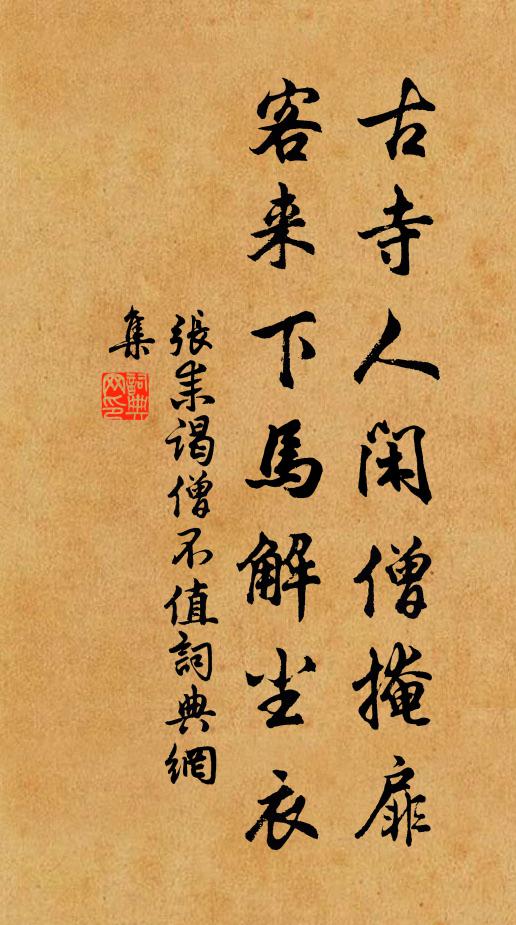 古寺人闲僧掩扉
客来下馬解尘衣
張耒谒僧不值詞典網
集
詞典网印